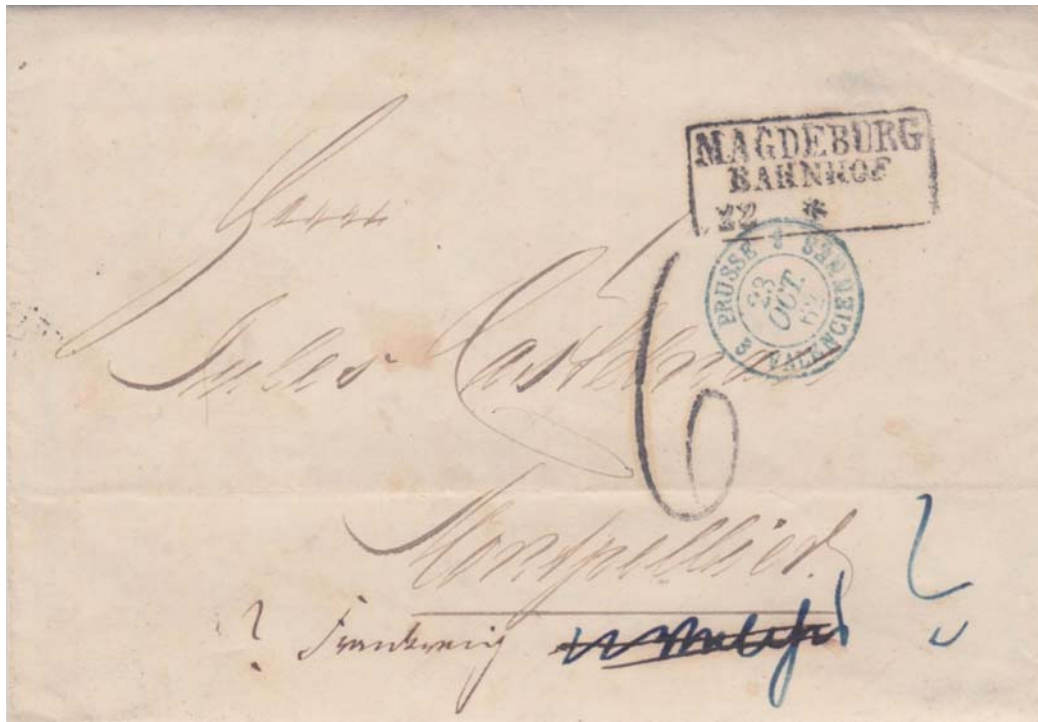 MAGDEBURG
BAHNHOF
22 *
PRUSSE 3 VALENCIENNES 3
23
OCT.
62
Herrn
Jules
6
Montpellier.
? Frankreich
2